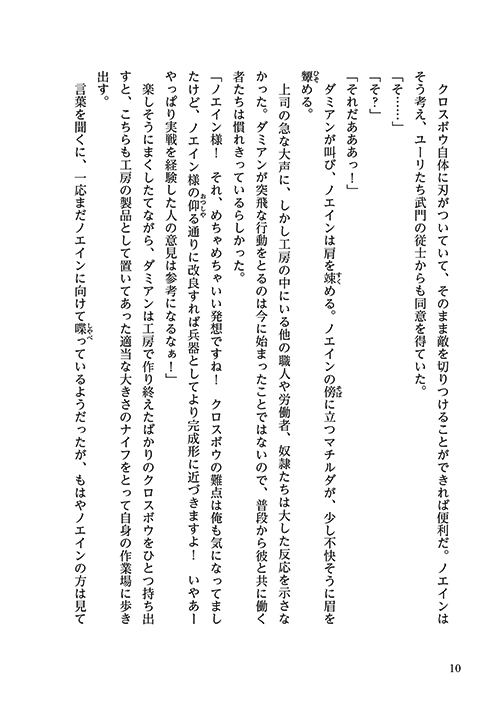 クロスボウ自体に刃がついていて、そのまま敵を切りつけることができれば便利だ。ノエインは
そう考え、ユーリたち武門の従士からも同意を得ていた。
「そ……」
「そ？」
「それだあああっ！」
ダミアンが叫び、ノエインは肩を竦める。ノエインの傍に立つマチルダが、少し不快そうに眉を
顰める。
上司の急な大声に、しかし工房の中にいる他の職人や労働者、奴隷たちは大した反応を示さな
かった。ダミアンが突飛な行動をとるのは今に始まったことではないので、普段から彼と共に働く
者たちは慣れきっているらしかった。
「ノエイン様！　それ、めちゃめちゃいい発想ですね！　クロスボウの難点は俺も気になってまし
たけど、ノエイン様の仰る通りに改良すれば兵器としてより完成形に近づきますよ！　いやあー
やっぱり実戦を経験した人の意見は参考になるなぁ！」
楽しそうにまくしたてながら、ダミアンは工房で作り終えたばかりのクロスボウをひとつ持ち出
すと、こちらも工房の製品として置いてあった適当な大きさのナイフをとって自身の作業場に歩き
出す。
言葉を聞くに、一応まだノエインに向けて喋っているようだったが、もはやノエインの方は見て
10